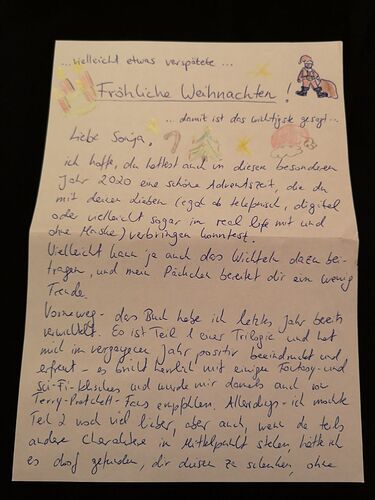 ...vielleicht etwas verspätete...
Fröhliche Weihnachten!
... damit ist das wichtigste gesagt...
Liebe Sonja,
ich hoffe, du hattest auch in diesem besonderen
Jahr 2020 eine schöne Adventszeit, die du
mit deinen Lieben (egal ob telefonisch, digital
oder vielleicht sogar im real life mit und
ohne Maske) verbringen konntest.
Vielleicht kann ja auch das Wichteln dazu bei-
tragen, und mein Päckchen bereitet dir ein wenig
Freude.
Vorneweg - das Buch habe ich letztes Jahr bereits
verwichtelt. Es ist Teil 1 einer Trilogie und hat
mich im vergangenen Jahr positiv beeindruckt und
erfreut - es bricht herrlich mit einigen Fantasy- und
Sci-Fi-Klischees und wurde mir damals auch von
Terry-Pratchett-Fans empfohlen. Allerdings - ich mochte
Teil 2 noch viel lieber, aber auch, wenn da teils
andere Charaktere im Mittelpunkt stehen, hätte ich
es doof gefunden, dir diesen zu schenken, ohne